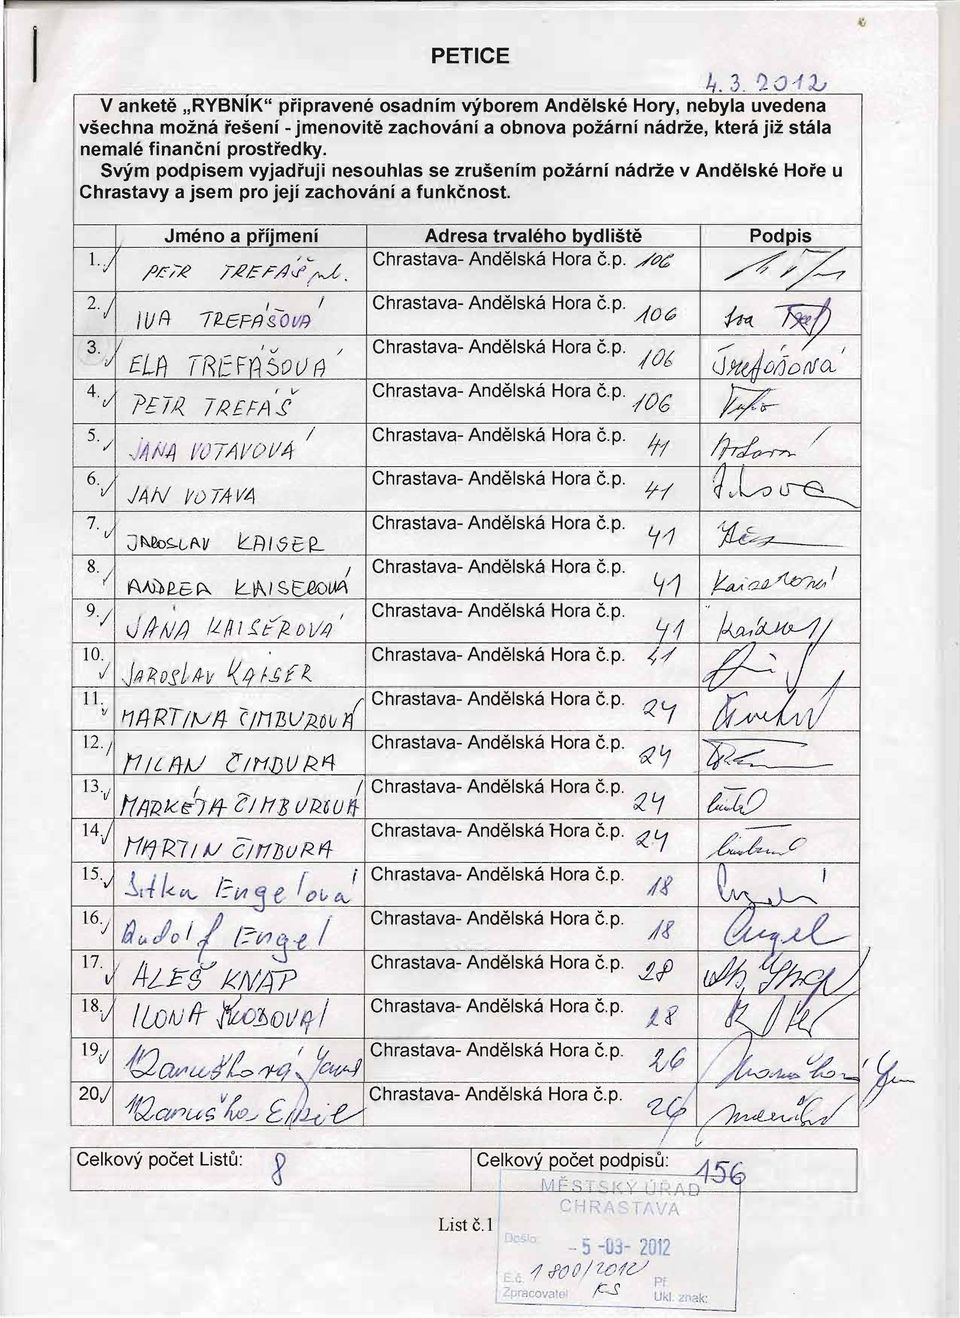 PETICE
4. 3. 2012
V anketě „RYBNÍK“ připravené osadním výborem Andělské Hory, nebyla uvedena
všechna možná řešení - jmenovitě zachování a obnova požární nádrže, která již stála
nemalé finanční prostředky.
Svým podpisem vyjadřuji nesouhlas se zrušením požární nádrže v Andělské Hoře u
Chrastavy a jsem pro její zachování a funkčnost.
Jméno a příjmení Adresa trvalého bydliště Podpis
1. PETR TREFÁŠ ml. Chrastava- Andělská Hora č.p. 106
2. IVA TREFÁŠOVÁ Chrastava- Andělská Hora č.p. 106 Iva
3. ELA TREFÁŠOVÁ Chrastava- Andělská Hora č.p. 106 Trefášová
4. PETR TREFÁŠ Chrastava- Andělská Hora č.p. 106
5. JANA VOTAVOVÁ Chrastava- Andělská Hora č.p. 41
6. JAN VOTAVA Chrastava- Andělská Hora č.p. 41
7. JAROSLAV KAISER Chrastava- Andělská Hora č.p. 41
8. ANDREA KAISEROVÁ Chrastava- Andělská Hora č.p. 41 Kaiserová
9. JANA KAISEROVÁ Chrastava- Andělská Hora č.p. 41
10. JAROSLAV KAISER Chrastava- Andělská Hora č.p. 41
11. MARTINA ČIMBUROVÁ Chrastava- Andělská Hora č.p. 24
12. MILAN ČIMBURA Chrastava- Andělská Hora č.p. 24
13. MARKÉTA ČIMBUROVÁ Chrastava- Andělská Hora č.p. 24
14. MARTIN ČIMBURA Chrastava- Andělská Hora č.p. 24
15. Jitka Engelová Chrastava- Andělská Hora č.p. 18
16. Rudolf Engel Chrastava- Andělská Hora č.p. 18 Engel
17. ALEŠ KNAP Chrastava- Andělská Hora č.p. 28
18. ILONA Chrastava- Andělská Hora č.p. 28
19. Chrastava- Andělská Hora č.p. 26
20. Chrastava- Andělská Hora č.p. 26
Celkový počet Listů: 8 Celkový počet podpisů: 156
MĚSTSKÝ ÚŘAD
CHRASTAVA
List č.1
Došlo:
- 5 -03- 2012
E.č. 1800/2012 Př.
Zpracovatel KS Ukl. znak: